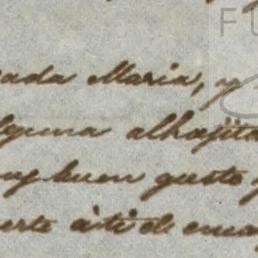 FU
ada Maria, y
lguna alhajita
uy buen gusto y
arte á ti de cua